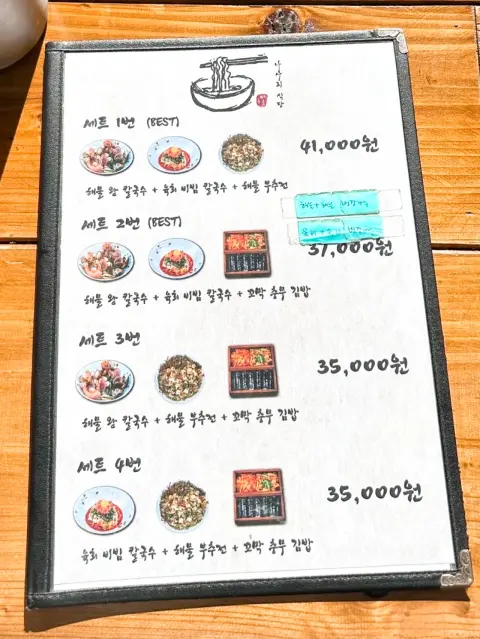 세트 1번 (BEST)
41,000원
해물 왕 칼국수 + 육회 비빔 칼국수 + 해물 부추전
세트 2번 (BEST)
37,000원
해물 왕 칼국수 + 육회 비빔 칼국수 + 꼬막 충무 김밥
세트 3번
35,000원
해물 왕 칼국수 + 해물 부추전 + 꼬막 충무 김밥
세트 4번
35,000원
육회 비빔 칼국수 + 해물 부추전 + 꼬막 충무 김밥